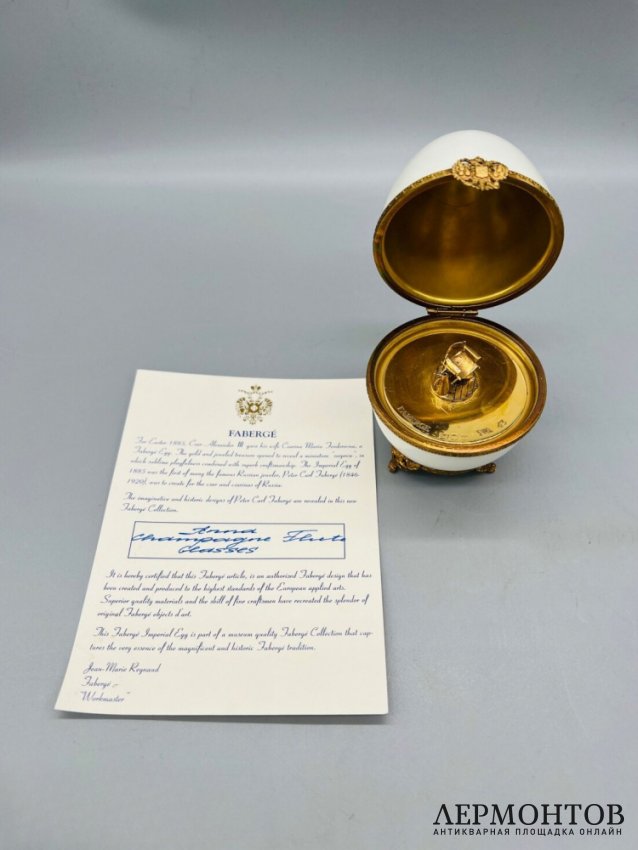 FABERGÉ
For Easter 1885, Czar Alexander III gave his wife Czarina Maria Feodorovna, a
Fabergé Egg. The gold and jeweled treasure opened to reveal a miniature "surprise", in
which sublime playfulness combined with superb craftsmanship. The Imperial Egg of
1885 was the first of many the famous Russian jeweler, Peter Carl Fabergé (1846-
1920), was to create for the czar and czarinas of Russia.
The imaginative and historic designs of Peter Carl Fabergé are revealed in this new
Fabergé Collection.
Anna
Champagne Flute
Glasses
It is hereby certified that this Fabergé article, is an authorized Fabergé design that has
been created and produced to the highest standards of the European applied arts.
Superior quality materials and the skill of fine craftsmen have recreated the splendor of
original Fabergé objects d'art.
This Fabergé Imperial Egg is part of a museum quality Fabergé Collection that cap-
tures the very essence of the magnificent and historic Fabergé tradition.
Jean-Marie Reynaud
Fabergé
"Workmaster"
FABERGÉ
ЛЕРМОНТОВ
АНТИКВАРНАЯ ПЛОЩАДКА ОНЛАЙН